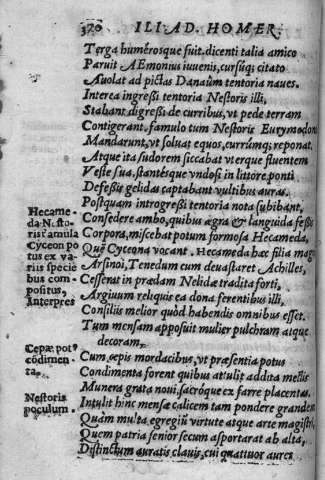 370 ILIAD. HOMER.
Terga humerosque fuit. dicenti talia amico
Paruit AEmonius iuuenis, cursúq; citato
Auolat ad pictas Danaûm tentoria naues.
Interea ingreßi tentoria Nestoris illi,
Stabant digreßi de curribus, vt pede terram
Contigerant. famulo tum Nestoris Eurymodoni
Mandarunt, vt soluat equos, currumq; reponat.
Atque ita sudorem siccabat vterque fluentem
Veste sua, stantésque vndosi in littore ponti
Defeßis gelidas captabant vultibus auras.
Postquam introgreßi tentoria nota subibant,
Consedere ambo, quibus ægra & languida feßis
Corpora, miscebat potum formosa Hecameda,
Quē Cyceona vocant. Hecameda hæc filia magni
Arsinoi, Tenedum cum deuastaret Achilles,
Cesserat in prædam Nelidæ tradita forti,
Argiuûm reliquis ea dona ferentibus illi,
Consiliis melior quòd habendis omnibus esset.
Tum mensam apposuit mulier pulchram atque
decoram,
Cum cepis mordacibus, vt præsentia potus
Condimenta forent quibus at'ulit addita mellis
Munera grata noui, sacróque ex farre placentas.
Intulit hinc mensæ calicem tam pondere grandem
Quàm multa egregiū virtute atque arte magistri,
Quem patria senior secum asportarat ab alta,
Distinctum auratis clauis, cui quattuor aures
Hecame-
da Nesto-
ris famula
Cyceon po
tus ex va-
riis specie
bus com-
positus,
Interpres
Cepæ pot9
cōdimen-
ta.
Nestoris
poculum.